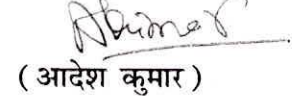 ( आदेश कुमार )